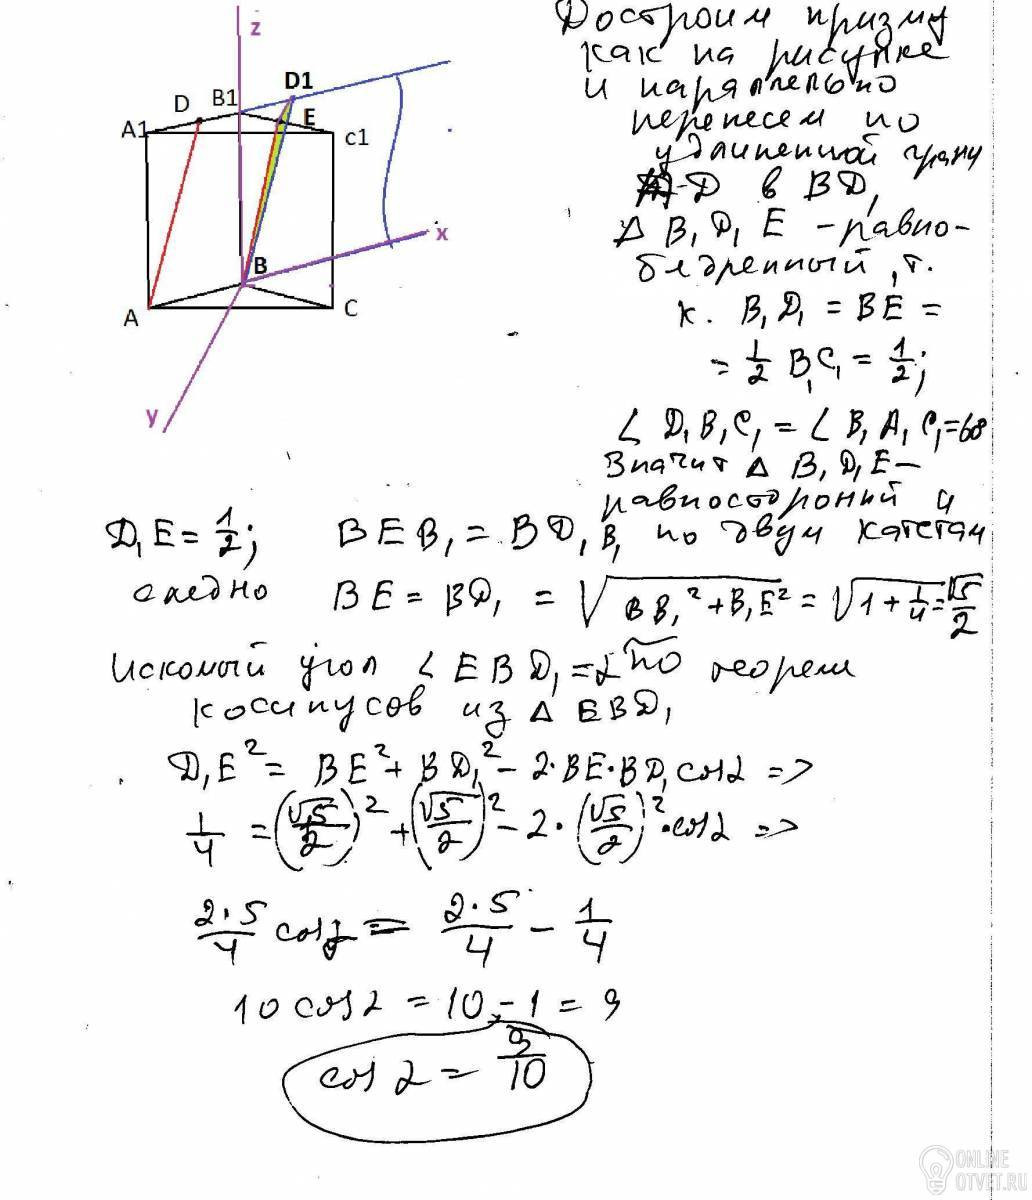 z
D1
D
B1
E
A1
c1
x
B
A
C
y
Достроим призму
как на рисунке
и параллельно
перенесем по
удлиненной грани
D в BD₁
Δ B₁D₁E – равно-
бедренный, т.
к. B₁D₁ = BE =
= 1/2 B₁C₁ = 1/2;
∠ D₁B₁C₁ = ∠ B₁A₁C₁ = 60
Значит Δ B₁D₁E –
равностороний и
D₁E = 1/2; BEB₁ = BD₁B₁ по двум катетам
следно BE = BD₁ = √(BB₁² + B₁E²) = √(1 + 1/4) = √5/2
Искомый угол ∠ EBD₁ = α по теореме
косинусов из Δ EBD₁
D₁E² = BE² + BD₁² – 2·BE·BD₁ cos α =>
1/4 = (√5/2)² + (√5/2)² – 2·(√5/2)²·cos α =>
2·5/4 cos α = 2·5/4 – 1/4
10 cos α = 10 – 1 = 9
cos α = 9/10
ONLINE
OTVET.RU